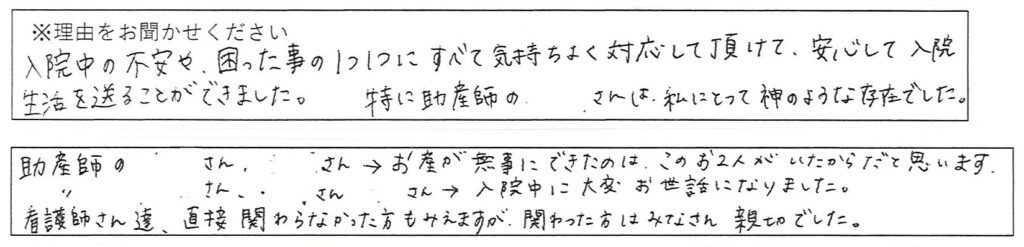 ※理由をお聞かせください
入院中の不安や、困った事の1つ1つにすべて気持ちよく対応して頂けて、安心して入院
生活を送ることができました。 特に助産師の さんは、私にとって神のような存在でした。
助産師の さん、 さん → お産が無事にできたのは、このお2人がいたからだと思います。
〃 さん、 さん さん → 入院中に大変お世話になりました。
看護師さん達、直接関わらなかった方もみえますが、関わった方はみなさん親切でした。